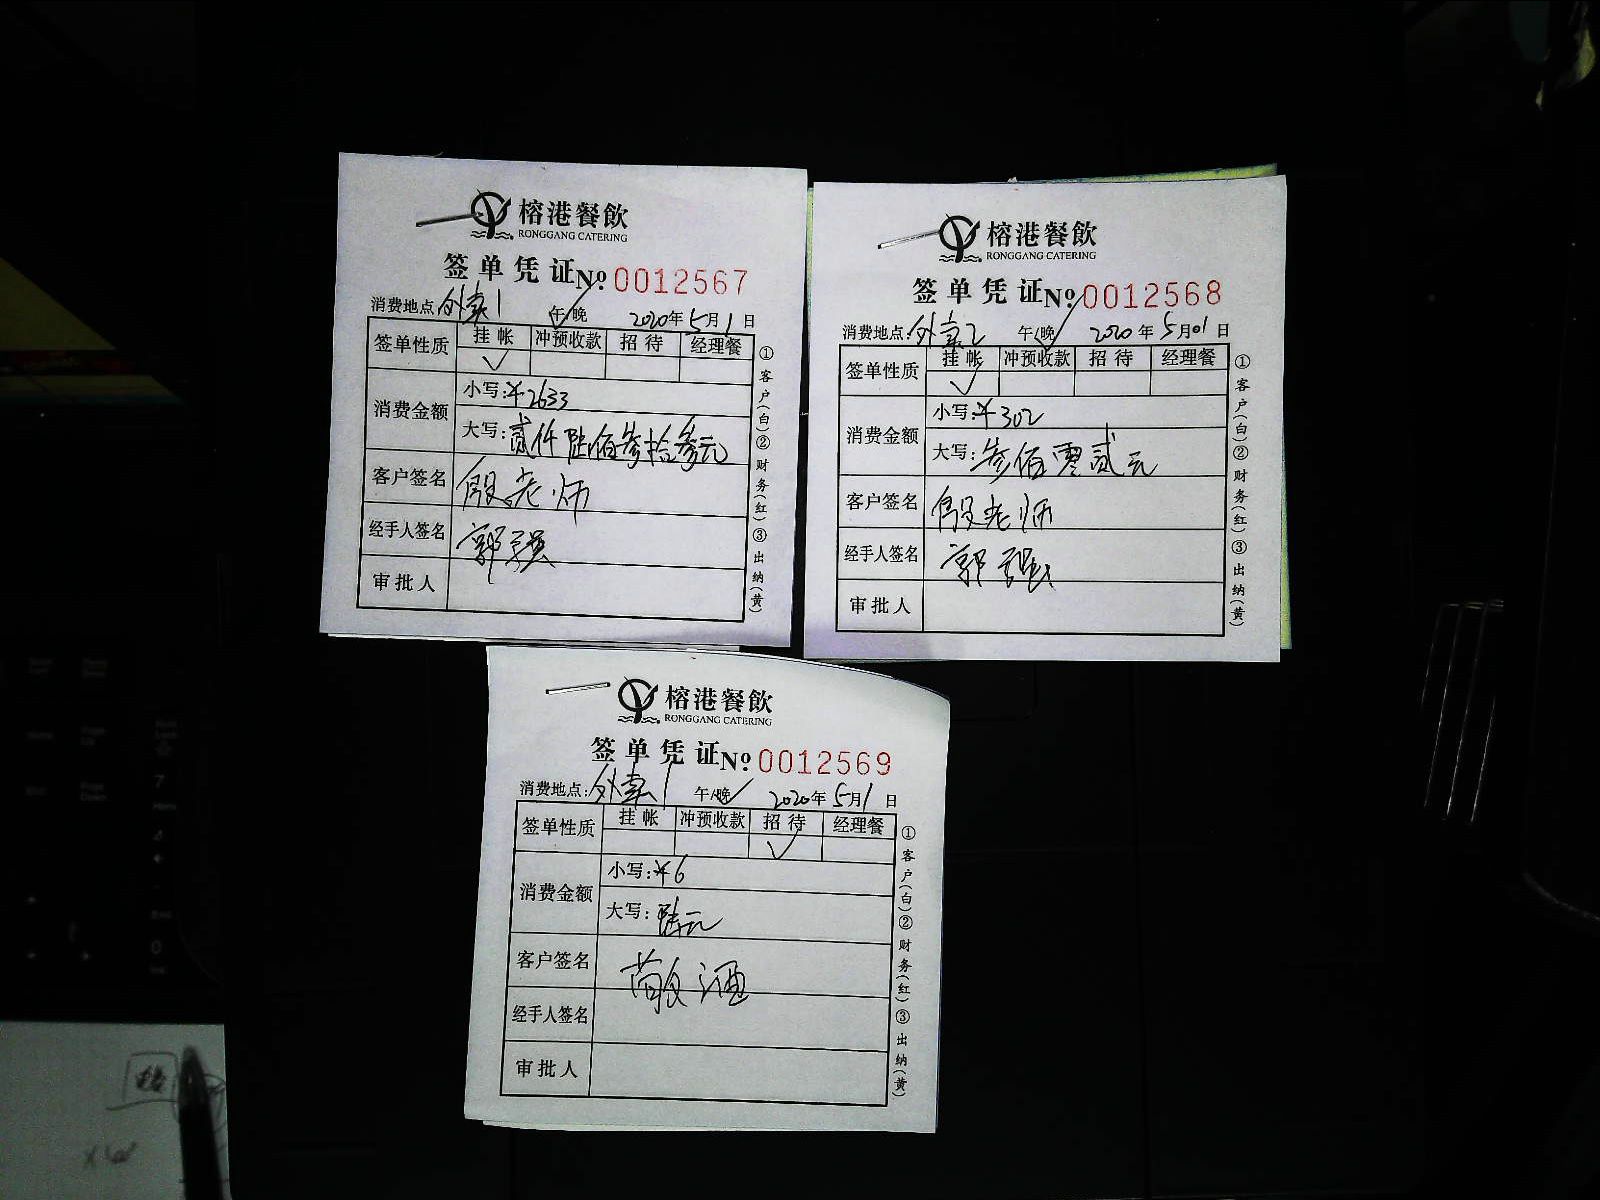 榕港餐飲
RONGGANG CATERING
签单凭证 № 0012567
消费地点:外卖1 午/晚 2020年5月1日
签单性质 挂帐 冲预收款 招待 经理餐
消费金额 小写:¥2633
大写:贰仟陆佰叁拾叁元
客户签名 殷老师
经手人签名 郭强
审批人
①客户(白)②财务(红)③出纳(黄)
榕港餐飲
RONGGANG CATERING
签单凭证 № 0012568
消费地点:外卖2 午/晚 2020年5月01日
签单性质 挂帐 冲预收款 招待 经理餐
消费金额 小写:¥302
大写:叁佰零贰元
客户签名 殷老师
经手人签名 郭强
审批人
①客户(白)②财务(红)③出纳(黄)
榕港餐飲
RONGGANG CATERING
签单凭证 № 0012569
消费地点:外卖1 午/晚 2020年5月1日
签单性质 挂帐 冲预收款 招待 经理餐
消费金额 小写:¥6
大写:陆元
客户签名 敬酒
经手人签名
审批人
①客户(白)②财务(红)③出纳(黄)